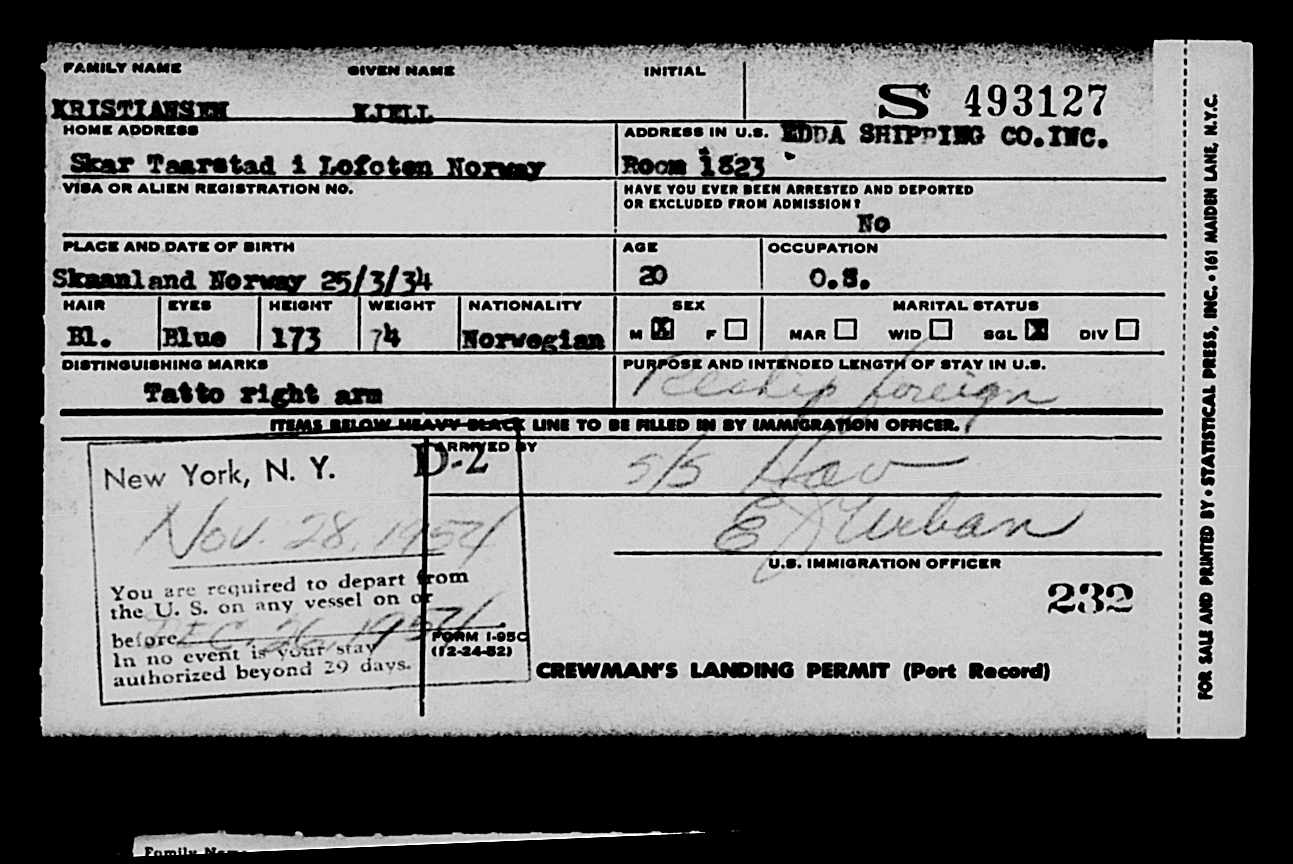 FAMILY NAME GIVEN NAME INITIAL
S 493127
KRISTIANSEN KJELL
HOME ADDRESS ADDRESS IN U.S. EDDA SHIPPING CO.INC.
Skar Taarstad i Lofoten Norway Room 1823
VISA OR ALIEN REGISTRATION NO. HAVE YOU EVER BEEN ARRESTED AND DEPORTED
OR EXCLUDED FROM ADMISSION?
No
PLACE AND DATE OF BIRTH AGE OCCUPATION
Skaanland Norway 25/3/34 20 O.S.
HAIR EYES HEIGHT WEIGHT NATIONALITY SEX MARITAL STATUS
Bl. Blue 173 74 Norwegian M X F MAR WID SGL X DIV
DISTINGUISHING MARKS PURPOSE AND INTENDED LENGTH OF STAY IN U.S.
Tatto right arm Reship foreign
ITEMS BELOW HEAVY BLACK LINE TO BE FILLED IN BY IMMIGRATION OFFICER.
New York, N. Y. D-2 ARRIVED BY
s/s Hav
Nov. 28, 1954
E J Urban
U.S. IMMIGRATION OFFICER
You are required to depart from
the U. S. on any vessel on or
before Dec. 26, 1954
In no event is your stay
authorized beyond 29 days.
232
FORM I-95C
(12-24-52)
CREWMAN'S LANDING PERMIT (Port Record)
FOR SALE AND PRINTED BY • STATISTICAL PRESS, INC. • 161 MAIDEN LANE, N.Y.C.
Family Name